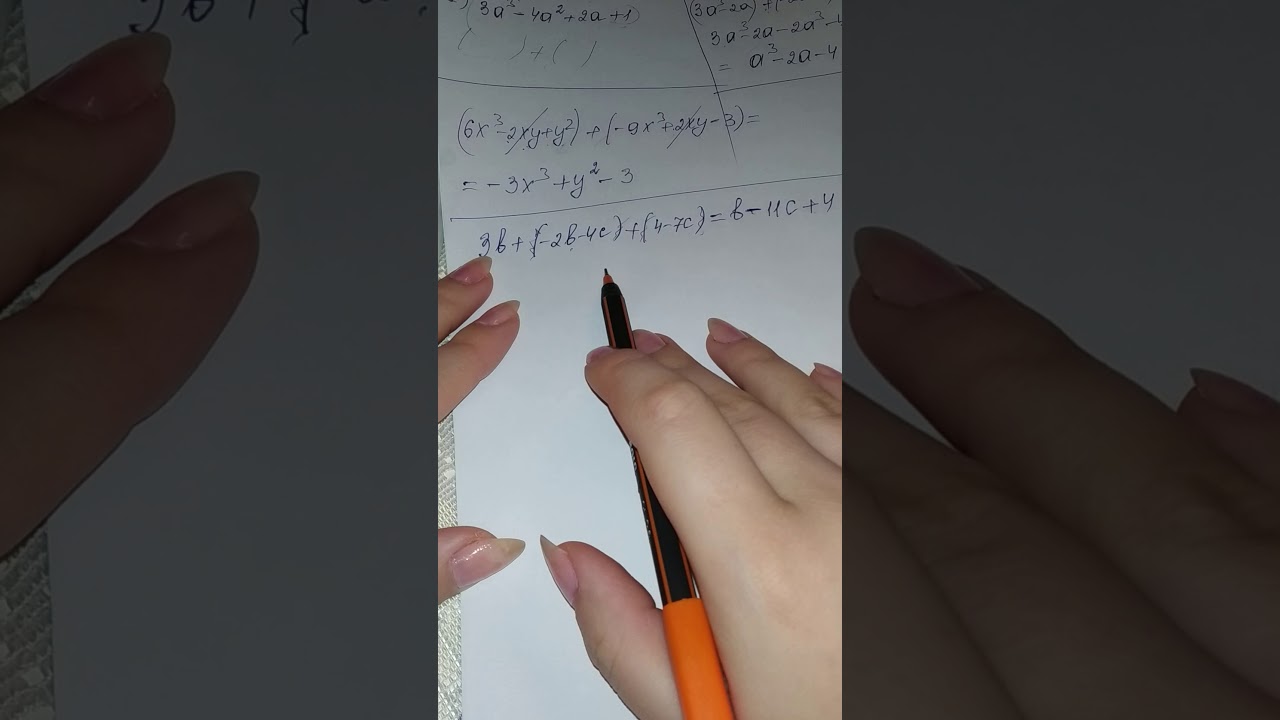 3a³-4a²+2a+1)
( ) + ( )
(3a³-2a)
3a³-2a-2a³-4
= a³-2a-4
(6x³-2xy+y²) + (-9x³+2xy-3)=
= -3x³+y²-3
3b+(-2b-4c)+(4-7c)=b-11c+4